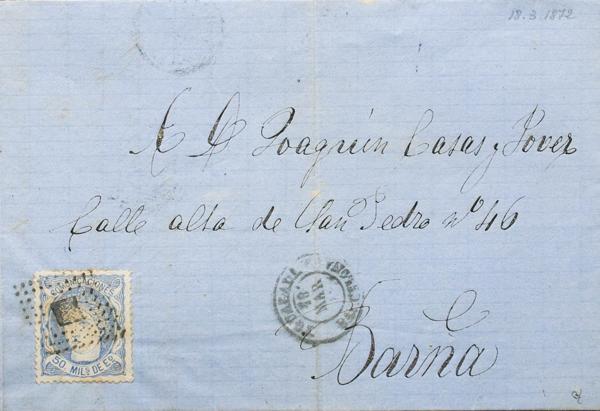 18.3.1872
A D Joaquín Casas y Jover
Calle alta de San Pedro nº 46
Barña
COMUNICACIONES
50 MILS DE E
MAR